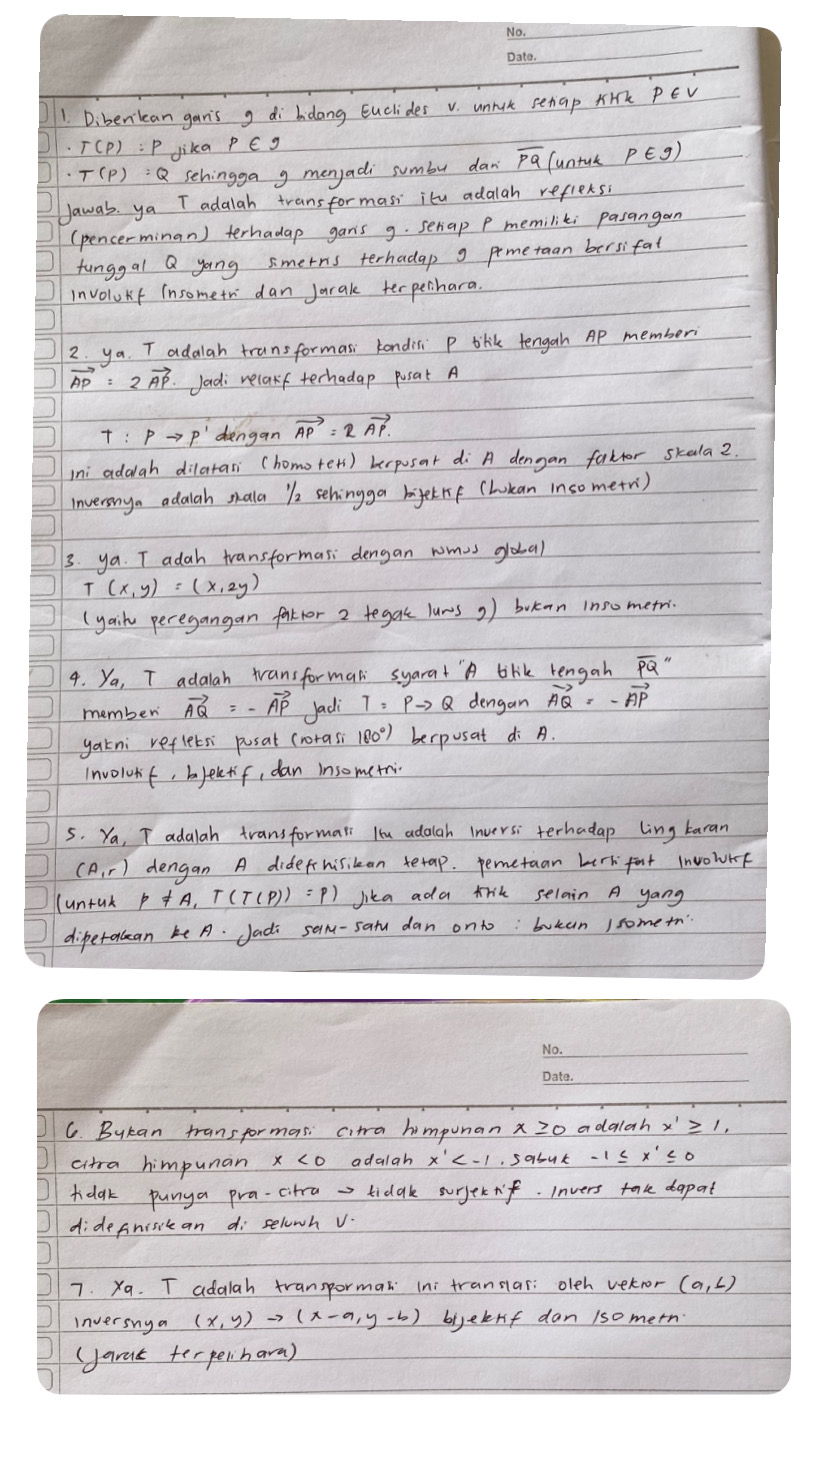 No.
Date.
1. Diberikan garis g di bidang Euclides V. untuk setiap titik P ∈ V
· T(P) = P jika P ∈ g
· T(P) = Q sehingga g menjadi sumbu dari PQ (untuk P ∈ g)
Jawab. ya T adalah transformasi itu adalah refleksi
(pencerminan) terhadap garis g. setiap P memiliki pasangan
tunggal Q yang simetris terhadap g pemetaan bersifat
involutif insometri dan jarak terpelihara.
2. ya. T adalah transformasi kondisi P titik tengah AP memberi
AP = 2 AP. Jadi relatif terhadap pusat A
T : P → P' dengan AP = 2 AP.
ini adalah dilatasi (homoteti) berpusat di A dengan faktor skala 2.
inversnya adalah skala 1/2 sehingga bijektif (bukan insometri)
3. ya. T adah transformasi dengan rumus global
T (x,y) = (x,2y)
(yaitu peregangan faktor 2 tegak lurus g) bukan insometri.
4. Ya, T adalah transformasi syarat "A titik tengah PQ"
memberi AQ = - AP jadi T = P → Q dengan AQ = - AP
yakni refleksi pusat (rotasi 180°) berpusat di A.
involutif, bjektif, dan insometri.
5. Ya, T adalah transformasi itu adalah inversi terhadap lingkaran
(A,r) dengan A didefinisikan tetap. pemetaan bersifat involutif
(untuk p ≠ A, T(T(P)) = P) jika ada titik selain A yang
dipetakan ke A. Jadi satu-satu dan onto : bukan isometri.
No.
Date.
6. Bukan transformasi citra himpunan x ≥ 0 adalah x' ≥ 1,
citra himpunan x < 0 adalah x' < -1. Sabuk -1 ≤ x' ≤ 0
tidak punya pra-citra → tidak surjektif. invers tak dapat
didefinisikan di seluruh V.
7. Ya. T adalah transpormasi ini translasi oleh vektor (a,b)
inversnya (x,y) → (x-a, y-b) bijektif dan isometri.
(jarak terpelihara)